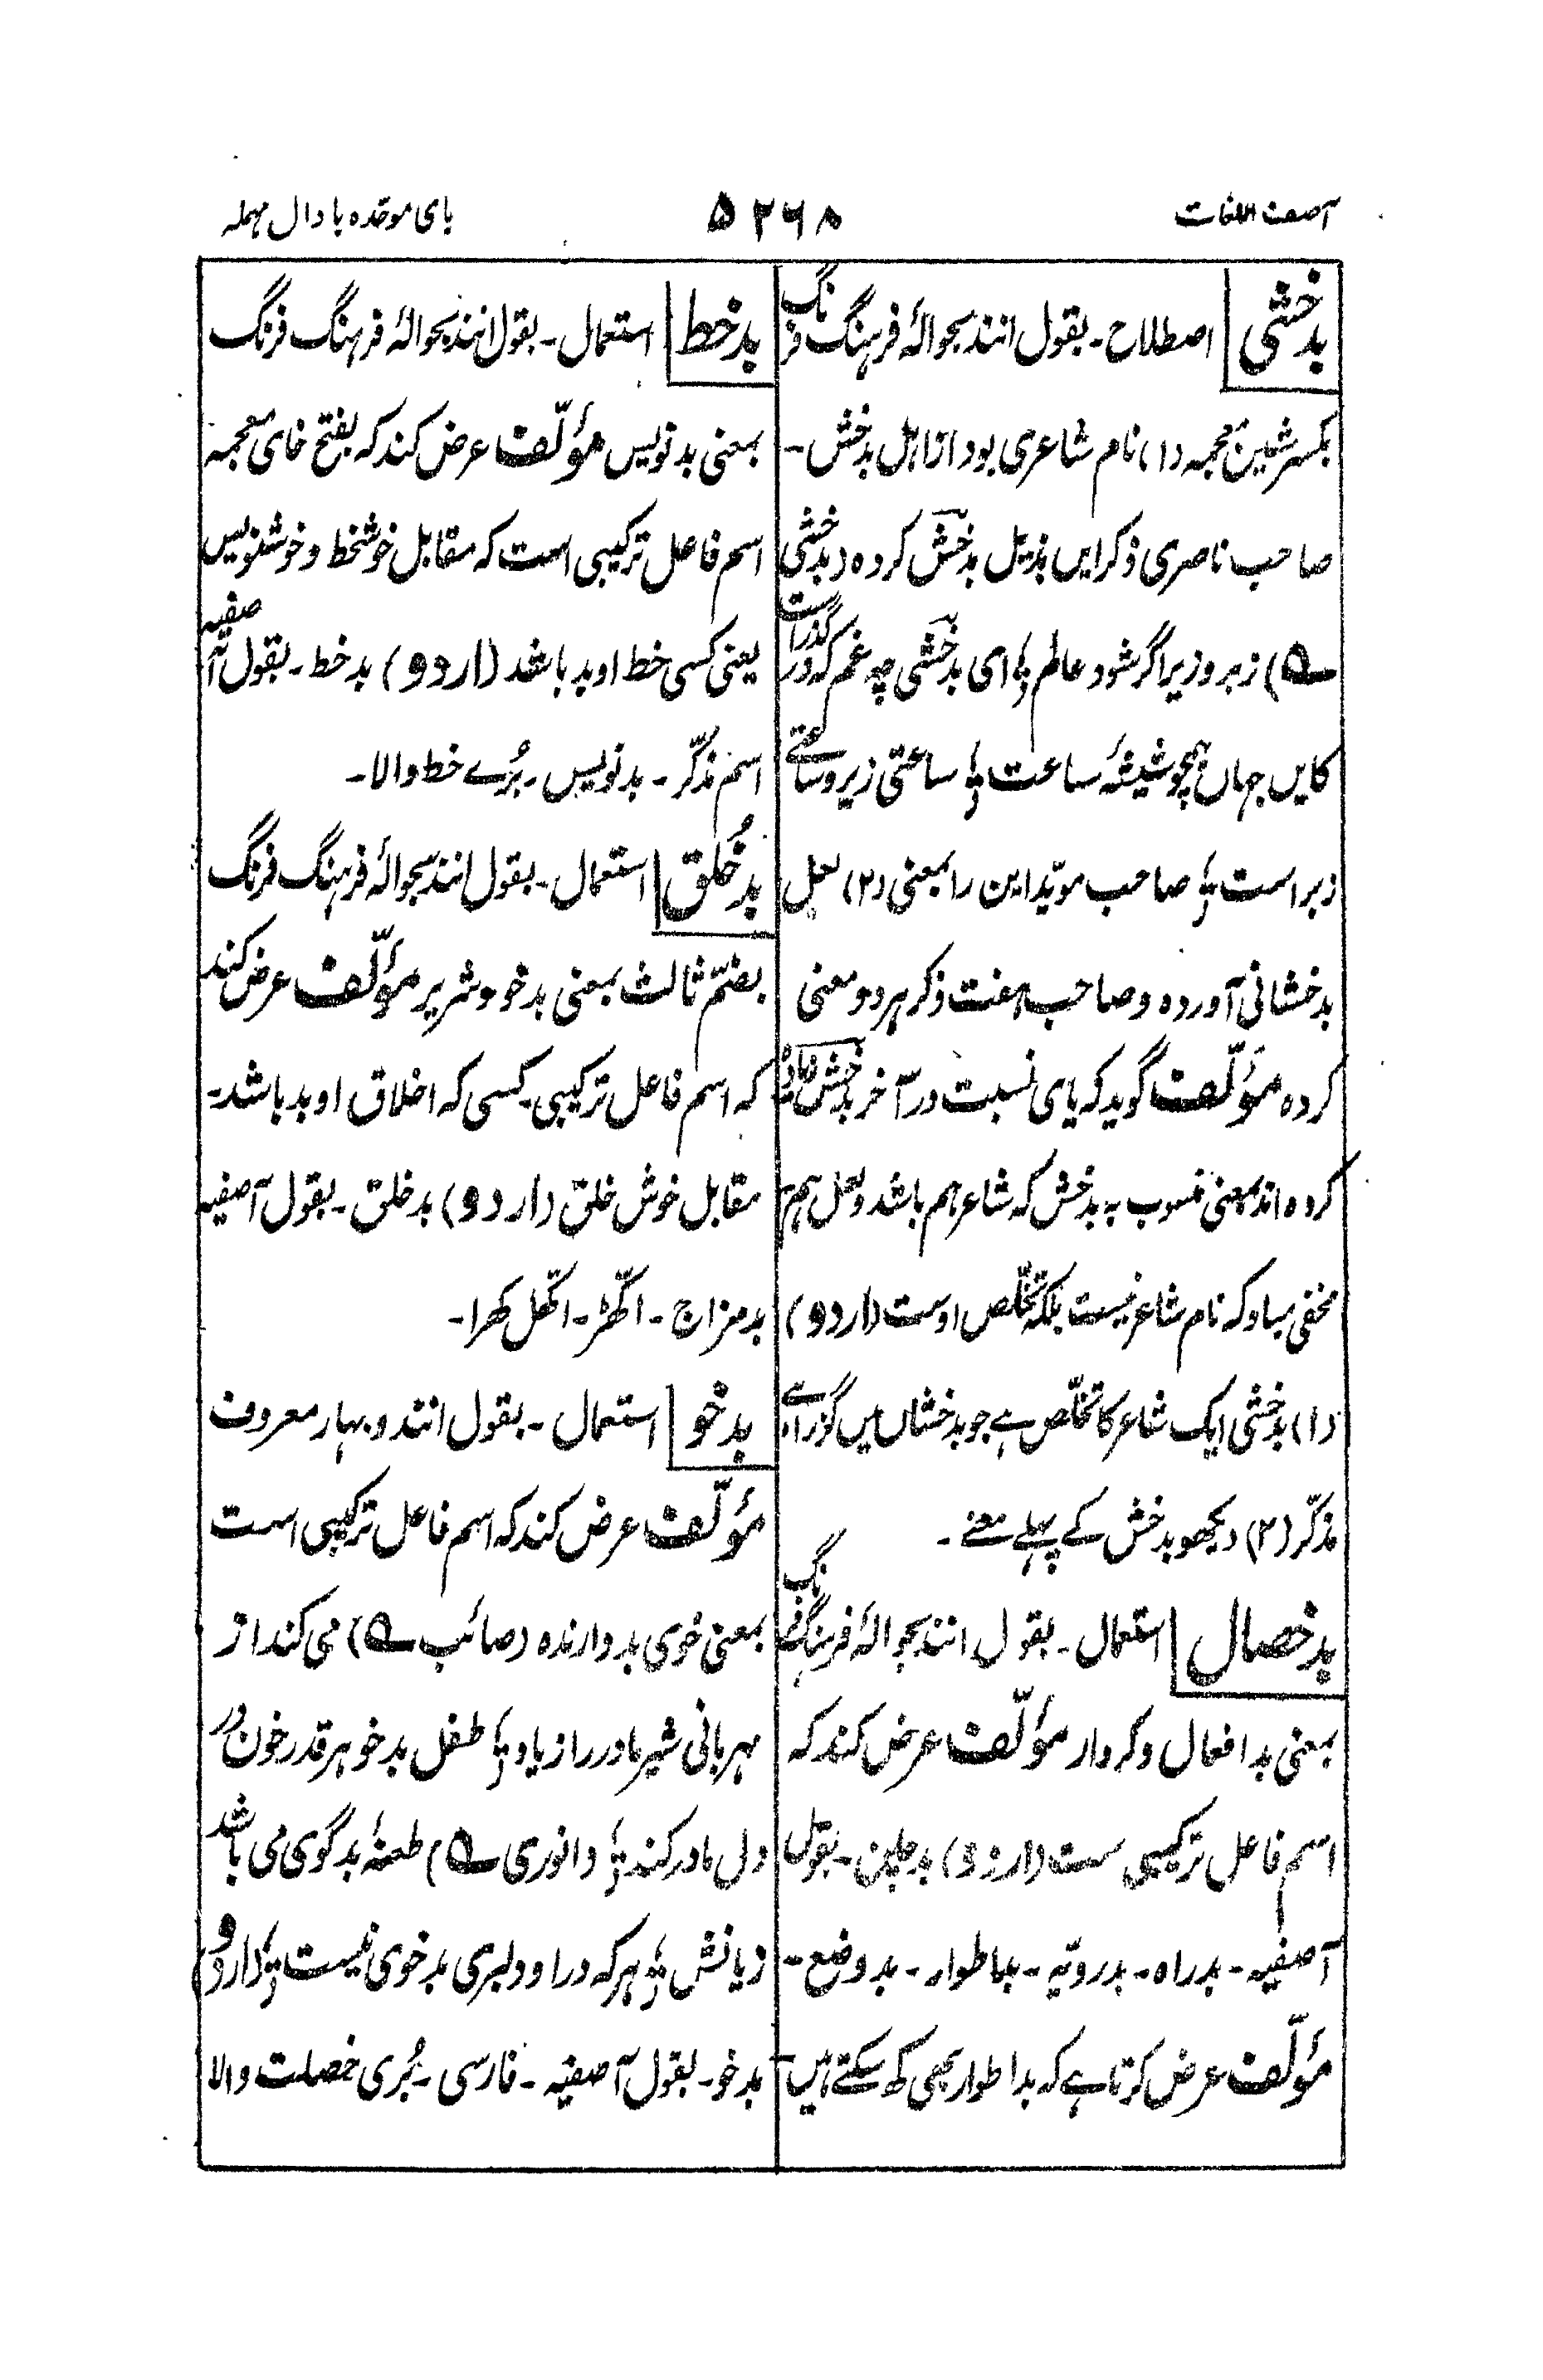 آصف اللغات
۵۲۶۸
بای موحّده با دال مہملہ
بدخشی اصطلاح۔ بقول انند بحوالۂ فرہنگ فرنگ
بکسر شین معجمہ (۱) نام شاعری بود از اہل بدخش۔
صاحب ناصری ذکر ایں بذیل بدخش کردہ (بدخشی
ے) زبر و زیر اگر شود عالم ؛ ای بدخشی چہ غم کہ در گذر است
کایں جہاں ہمچو شیشۂ ساعت ؛ ساعتی زیر و ساعتے
زبر است ؛ صاحب مویّد این را بمعنی (۲) لعل
بدخشانی آوردہ و صاحب ہفت ذکر ہر دو معنی
کردہ مؤلّف گوید کہ یای نسبت در آخر بدخش زیادہ
کردہ اند بمعنی منسوب بہ بدخش کہ شاعر ہم باشد و لعل ہم
مخفی مباد کہ نام شاعر نیست بلکہ تخلّص اوست (اردو)
(۱) بدخشی ایک شاعر کا تخلّص ہے جو بدخشاں میں گذرا ہے
مذکّر (۲) دیکھو بدخش کے پہلے معنے۔
بدخصال استعمال۔ بقول انند بحوالۂ فرہنگ فرنگ
بمعنی بد افعال و کردار مؤلّف عرض کند کہ
اسم فاعل ترکیبی ست (اردو) بدچلن۔ بقول
آصفیہ۔ بدراہ۔ بدرویّہ۔ بداطوار۔ بدوضع۔
مؤلّف عرض کرتا ہے کہ بداطوار بھی کہہ سکتے ہیں۔
بدخط استعمال۔ بقول انند بحوالۂ فرہنگ فرنگ
بمعنی بدنویس مؤلّف عرض کند کہ بفتح خای معجمہ
اسم فاعل ترکیبی است کہ مقابل خوشخط و خوشنویس
یعنی کسی خط او بد باشد (اردو) بدخط۔ بقول آصفیہ
اسم مذکّر۔ بدنویس۔ بُرے خط والا۔
بدخُلق استعمال۔ بقول انند بحوالۂ فرہنگ فرنگ
بضمّ ثالث بمعنی بدخو و شریر مؤلّف عرض کند
کہ اسم فاعل ترکیبی۔ کسی کہ اخلاق او بد باشد۔
مقابل خوش خلق (اردو) بدخلق۔ بقول آصفیہ
بدمزاج۔ اکھّڑ۔ اکھّل کھرا۔
بدخو استعمال۔ بقول انند و بہار معروف
مؤلّف عرض کند کہ اسم فاعل ترکیبی است
بمعنی خوی بد دارندہ (صائب ے) می کند از
مہربانی شیر مادر را زیاد ؛ طفل بدخو ہر قدر خون در
دل مادر کند ؛ (انوری ے) طعنۂ بدگوی می باشد
زیانش ؛ ہر کہ در او دلبری بدخوی نیست ؛ (اردو)
بدخو۔ بقول آصفیہ۔ فارسی۔ بُری خصلت والا